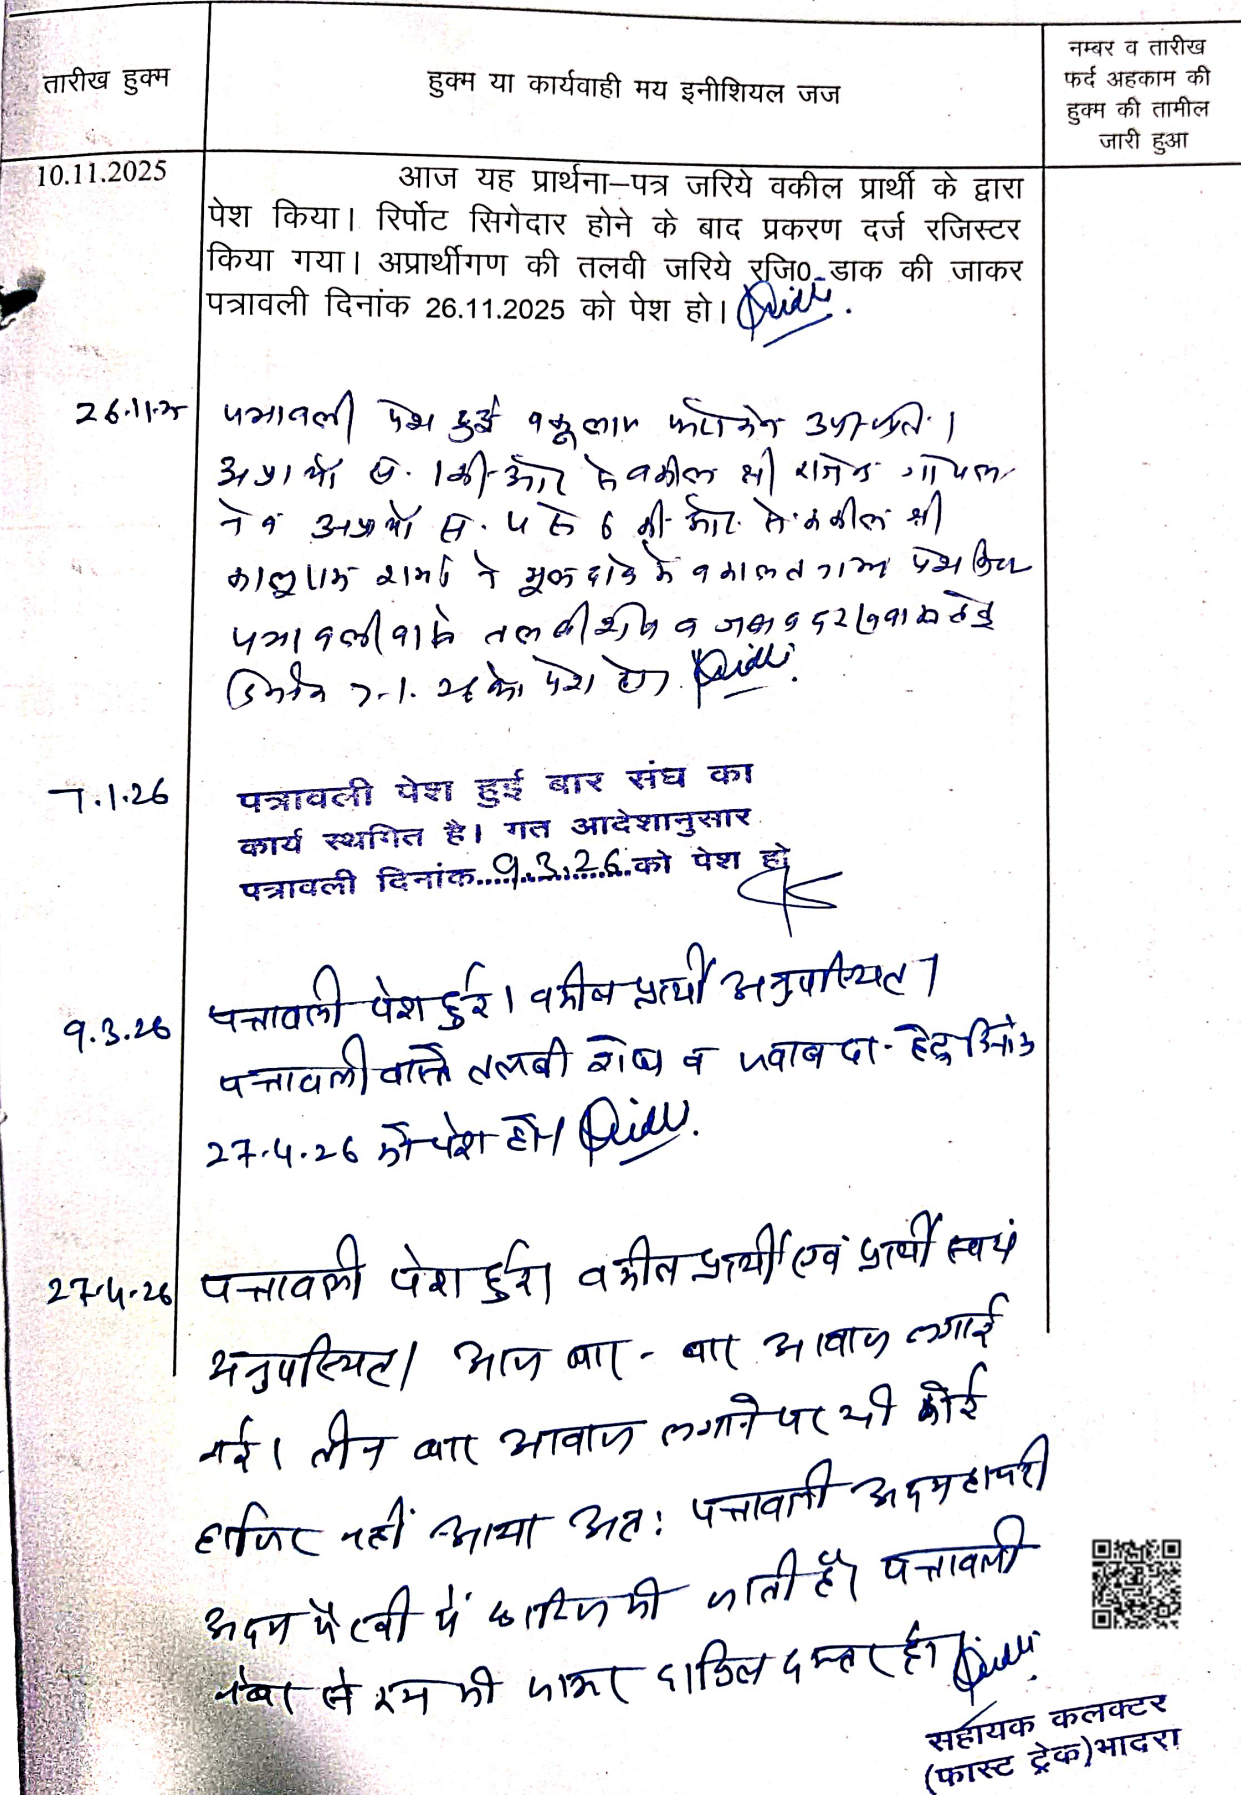 तारीख हुक्म
हुक्म या कार्यवाही मय इनीशियल जज
नम्बर व तारीख
फर्द अहकाम की
हुक्म की तामील
जारी हुआ
10.11.2025
आज यह प्रार्थना–पत्र जरिये वकील प्रार्थी के द्वारा
पेश किया। रिर्पोट सिगेदार होने के बाद प्रकरण दर्ज रजिस्टर
किया गया। अप्रार्थीगण की तलवी जरिये रजि0 डाक की जाकर
पत्रावली दिनांक 26.11.2025 को पेश हो।
26.11.25
पत्रावली पेश हुई वकूलाय फरीकेन उपस्थित।
अप्रार्थी सं. 1 की ओर से वकील श्री राजेन्द्र गोयल
ने व अप्रार्थी सं. 4 से 6 की ओर से वकील श्री
कालूराम शर्मा ने मूल दावे में वकालतनामा पेश किया
पत्रावली वास्ते तलबी शेष व जवाब दरख्वास्त हेतु
दिनांक 7.1.26 को पेश हो।
7.1.26
पत्रावली पेश हुई बार संघ का
कार्य स्थगित है। गत आदेशानुसार
पत्रावली दिनांक 9.3.26 को पेश हो
9.3.26
पत्रावली पेश हुई। वकील प्रार्थी अनुपस्थित।
पत्रावली वास्ते तलबी शेष व जवाब दा. हेतु दिनांक
27.4.26 को पेश हो।
27.4.26
पत्रावली पेश हुई। वकील प्रार्थी एवं प्रार्थी स्वयं
अनुपस्थित। आज बार - बार आवाज लगाई
गई। तीन बार आवाज लगाने पर भी कोई
हाजिर नहीं आया अतः पत्रावली अदम हाजरी
अदम पैरवी में खारिज की जाती है। पत्रावली
नंबर से कम की जाकर दाखिल दफ्तर हो।
सहायक कलक्टर
(फास्ट ट्रेक)भादरा